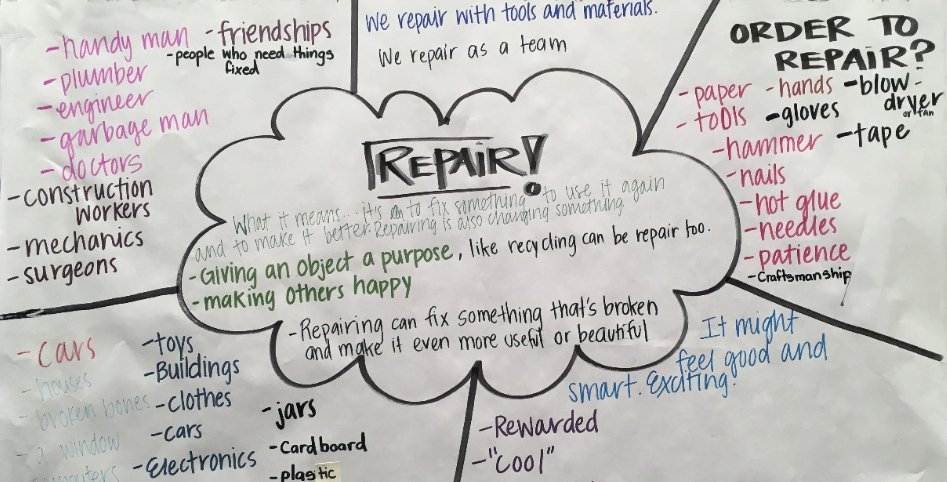 -handy man
-plumber
-engineer
-garbage man
-doctors
-construction
workers
-mechanics
-surgeons
-friendships
-people who need things
fixed
We repair with tools and materials.
We repair as a team
ORDER TO
REPAIR?
-paper
-tools
-hammer
-nails
-hot glue
-needles
-patience
-Craftsmanship
-hands
-gloves
-blow-
dryer
or fan
-tape
REPAIR!
What it means... it's to fix something to use it again
and to make it better. Repairing is also changing something
-Giving an object a purpose, like recycling can be repair too.
-making others happy
-Repairing can fix something that's broken
and make it even more useful or beautiful
-cars
-houses
-broken bones
-a window
-toys
-Buildings
-clothes
-cars
-Electronics
-jars
-Cardboard
-plastic
-Rewarded
-"cool"
It might
feel good and
smart. Exciting!